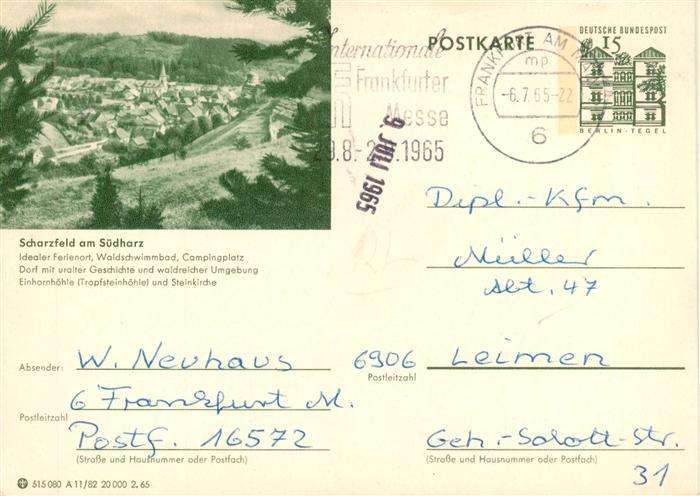 Internationale
Frankfurter
Messe
29.8.-2.9.1965
POSTKARTE
FRANKFURT AM
mp
-6.7.65-22
6
DEUTSCHE BUNDESPOST
15
BERLIN-TEGEL
9. JULI 1965
Scharzfeld am Südharz
Idealer Ferienort, Waldschwimmbad, Campingplatz
Dorf mit uralter Geschichte und waldreicher Umgebung
Einhornhöhle (Tropfsteinhöhle) und Steinkirche
Dipl.-Kfm.
Müller
Abt. 47
6906 Leimen
Postleitzahl
Geh.-Schott-Str.
(Straße und Hausnummer oder Postfach)
31
Absender: W. Neuhaus
6 Frankfurt M.
Postleitzahl
Postf. 16572
(Straße und Hausnummer oder Postfach)
515 080 A 11/82 20 000 2.65